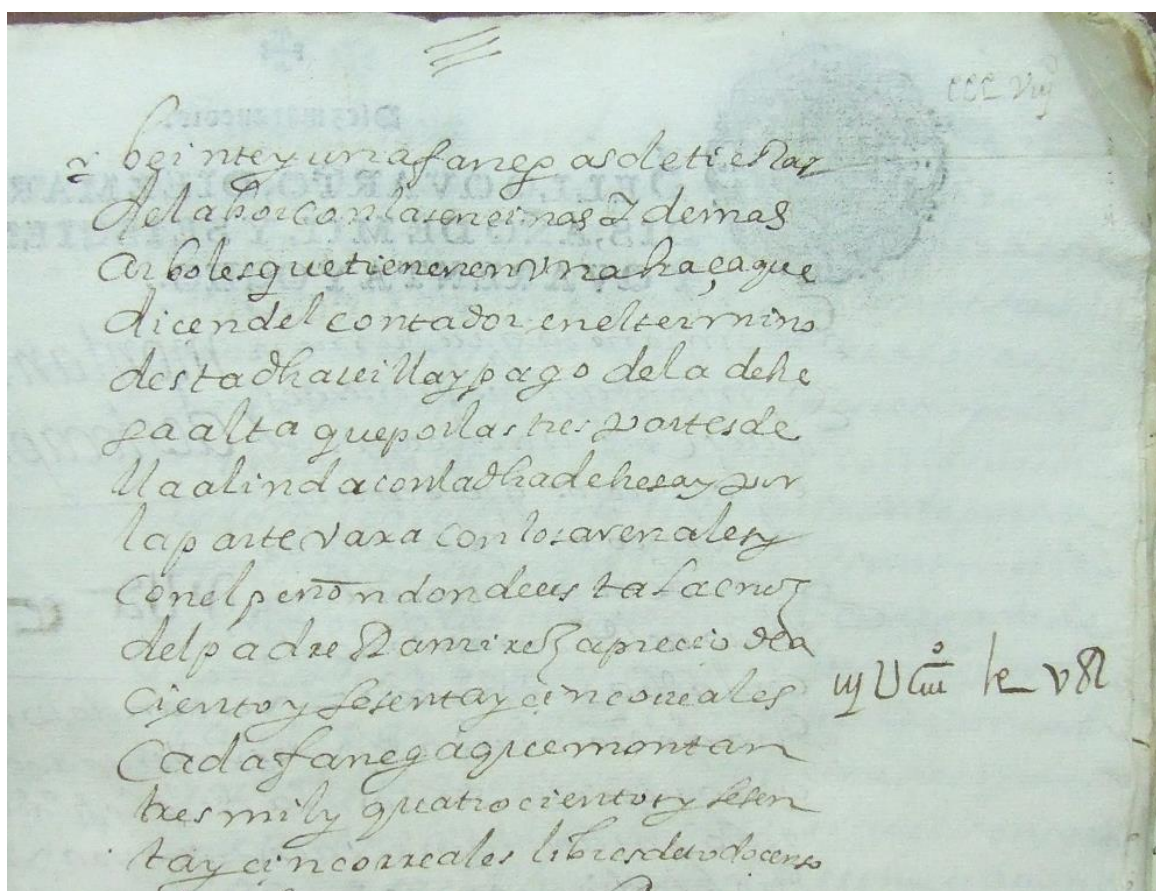 CCCLViij
beinte y una fanegas de tierras
de labor con las encinas y demas
arboles que tienen en una haça que
dicen del contador en el termino
desta dha uilla y pago de la dehe
sa alta que por las tres partes de
lla alinda con la dha dehesa y por
la parte vaxa con los arenales y
con el peñon donde esta la cruz
del padre Ramirez a precio de a
ciento y sesenta y cinco reales
Cada fanega que montan
tres mil y quatrocientos y sesen
ta y cinco rreales libres de todo censo